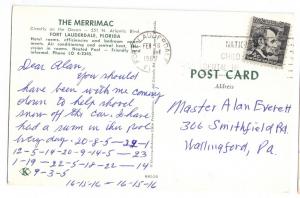 THE MERRIMAC
(Directly on the Ocean — 551 N. Atlantic Blvd.
FORT LAUDERDALE, FLORIDA
Hotel rooms, efficiencies and bedroom apart-
ments. Air conditioning and central heat.
Heated Pool — Free parking
Phone LO 4-2345.
FT. LAUDERDALE
FEB
FLA.
NATIONAL
CHILDREN'S
Dear Alan,
You should
have been with me coming
down to help shovel
snow off the car. I have
had a swim in this pool
every day. 20-8-5—23-1-
12-5-14-20-9-14-5—23
1-19—22-5-18-22—14
9-3-5
16-15-16—16-15-16
POST CARD
Address
Master Alan Everett
306 Smithfield Rd.
Wallingford,
Pa.